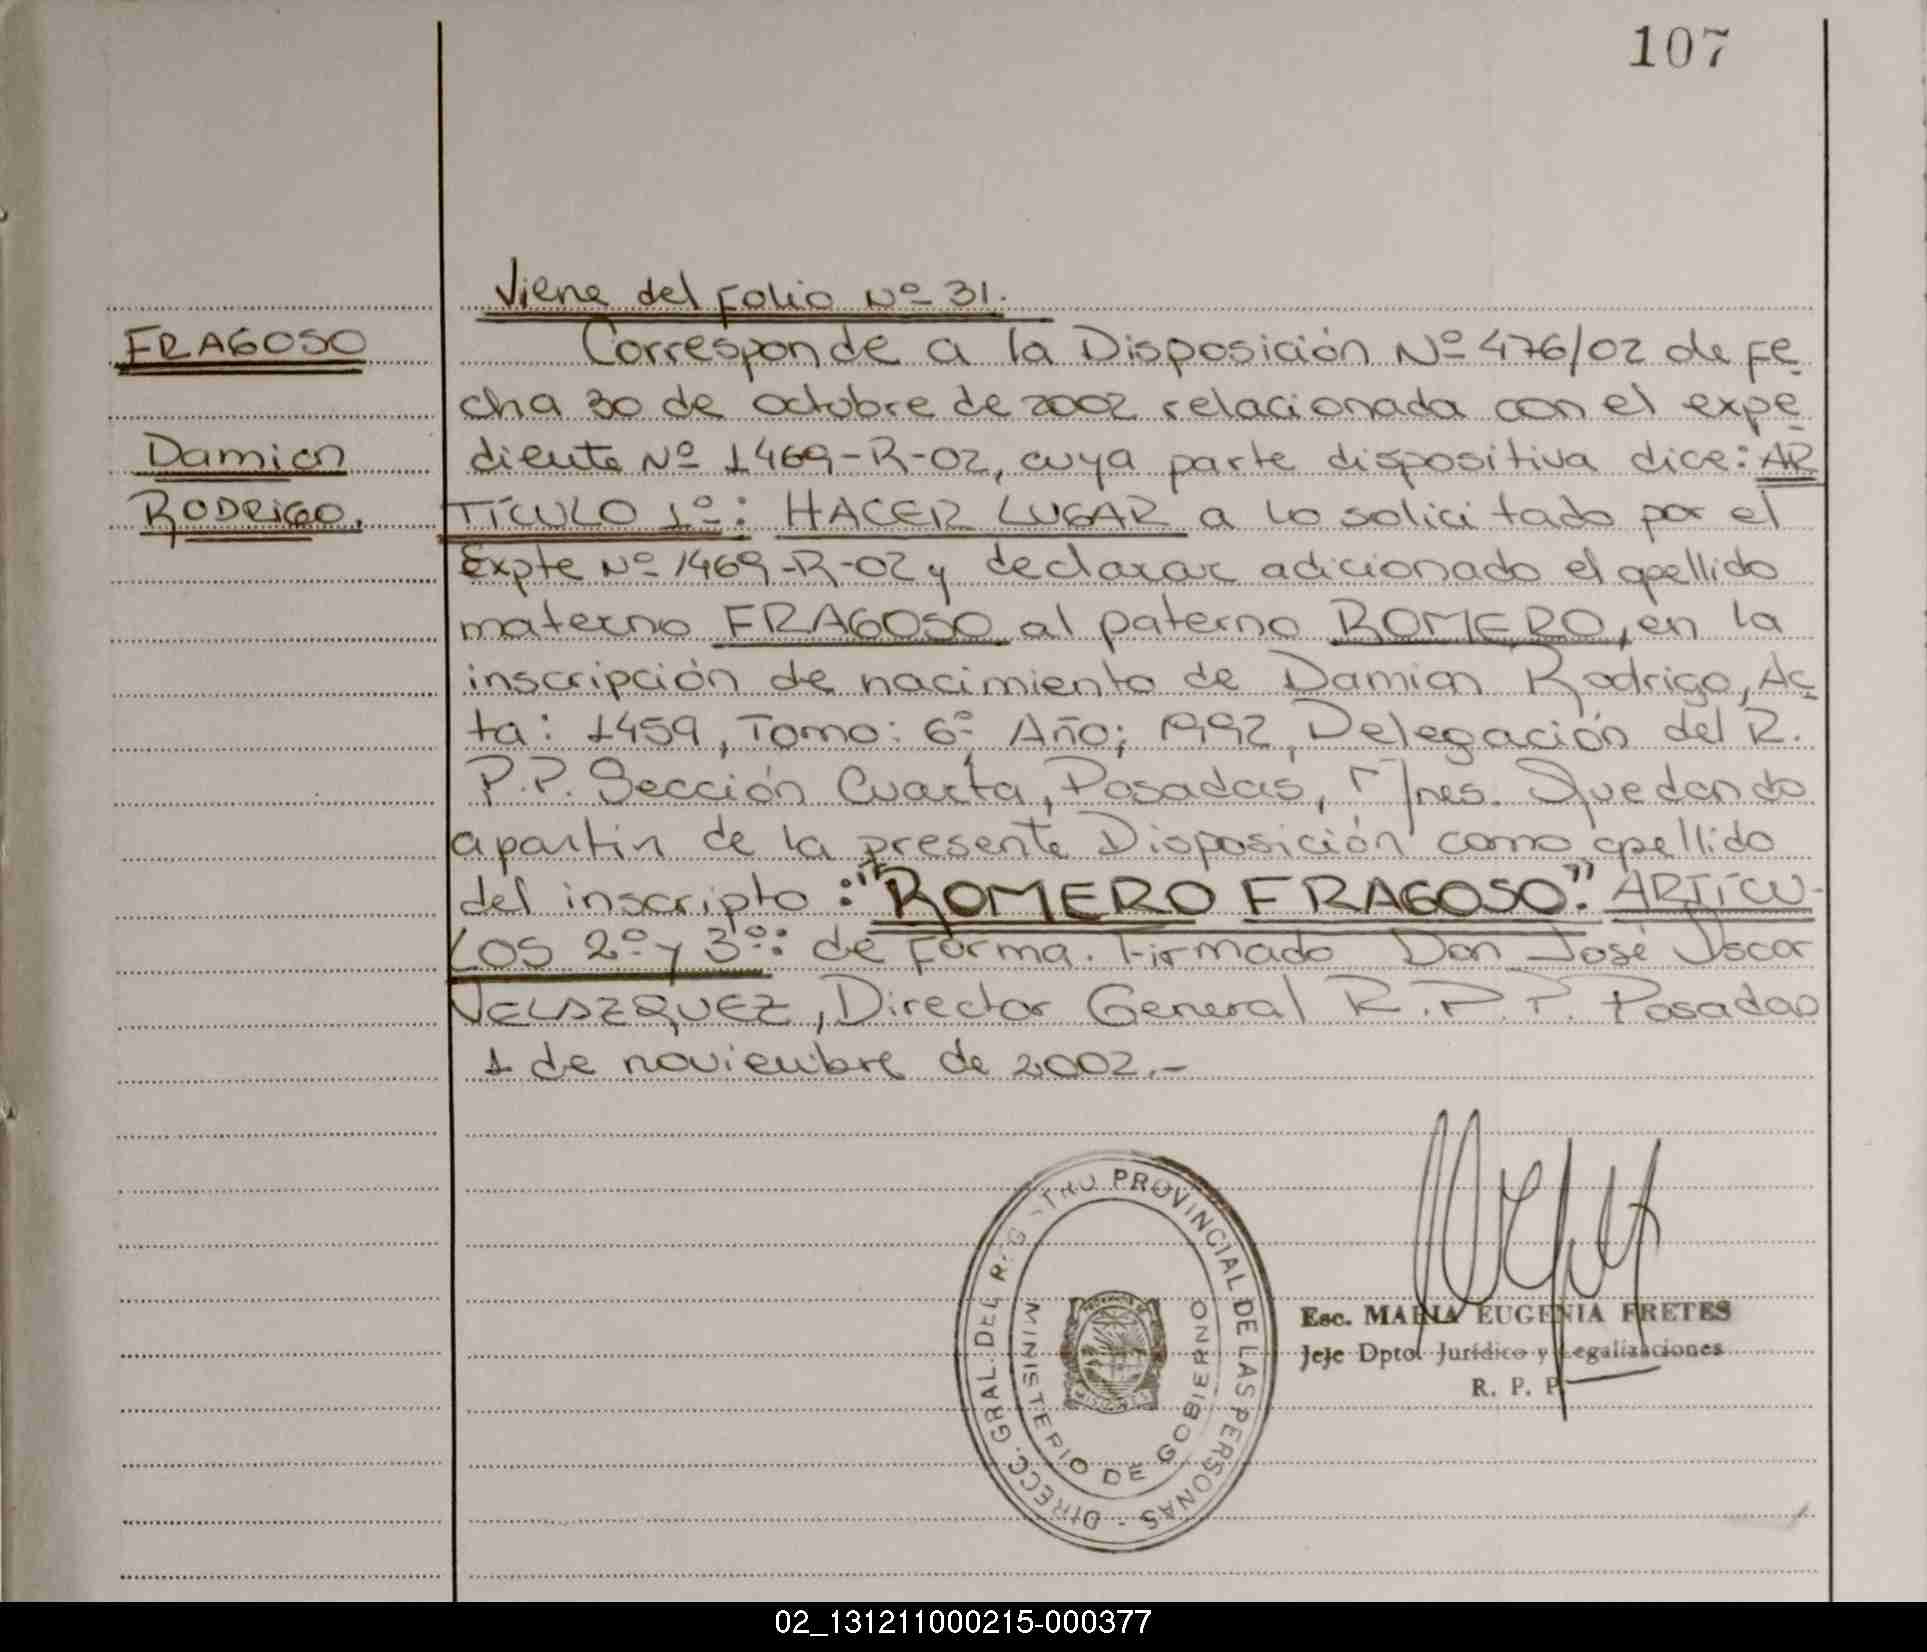 107
Viene del Folio Nº 31.
FRAGOSO
Corresponde a la Disposición Nº 476/02 de Fe
cha 30 de octubre de 2002 relacionada con el expe
Damian
diente Nº 1469-R-02, cuya parte dispositiva dice: AR
RODRIGO.
TÍCULO 1º: HACER LUGAR a lo solicitado por el
Expte Nº 1469-R-02 y declarar adicionado el apellido
materno FRAGOSO al paterno ROMERO, en la
inscripción de nacimiento de Damian Rodrigo, Ac
ta: 1459, Tomo: 6º, Año; 1992, Delegación del R.
P.P. Sección Cuarta, Posadas, M/nes. Quedando
a partir de la presente Disposición como apellido
del inscripto: "ROMERO FRAGOSO". ARTÍCU-
LOS 2º y 3º: de Forma. Firmado Don José Oscar
VELAZQUEZ, Director General R.P.P. Posadas
1 de noviembre de 2002.-
DIRECC. GRAL. DEL REGISTRO PROVINCIAL DE LAS PERSONAS -
MINISTERIO DE GOBIERNO
Esc. MARIA EUGENIA FRETES
Jefe Dpto. Jurídico y Legalizaciones
R. P. P.
02_131211000215-000377